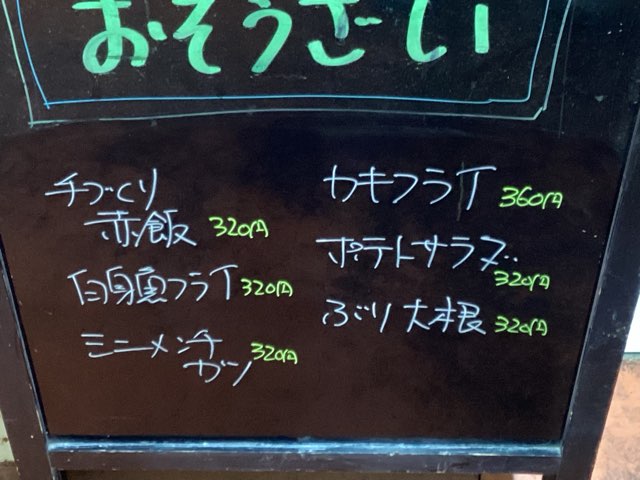 おそうざい
手づくり
赤飯 320円
白身魚フライ 320円
ミニメンチ
カツ 320円
カキフライ 360円
ポテトサラダ
320円
ぶり大根 320円